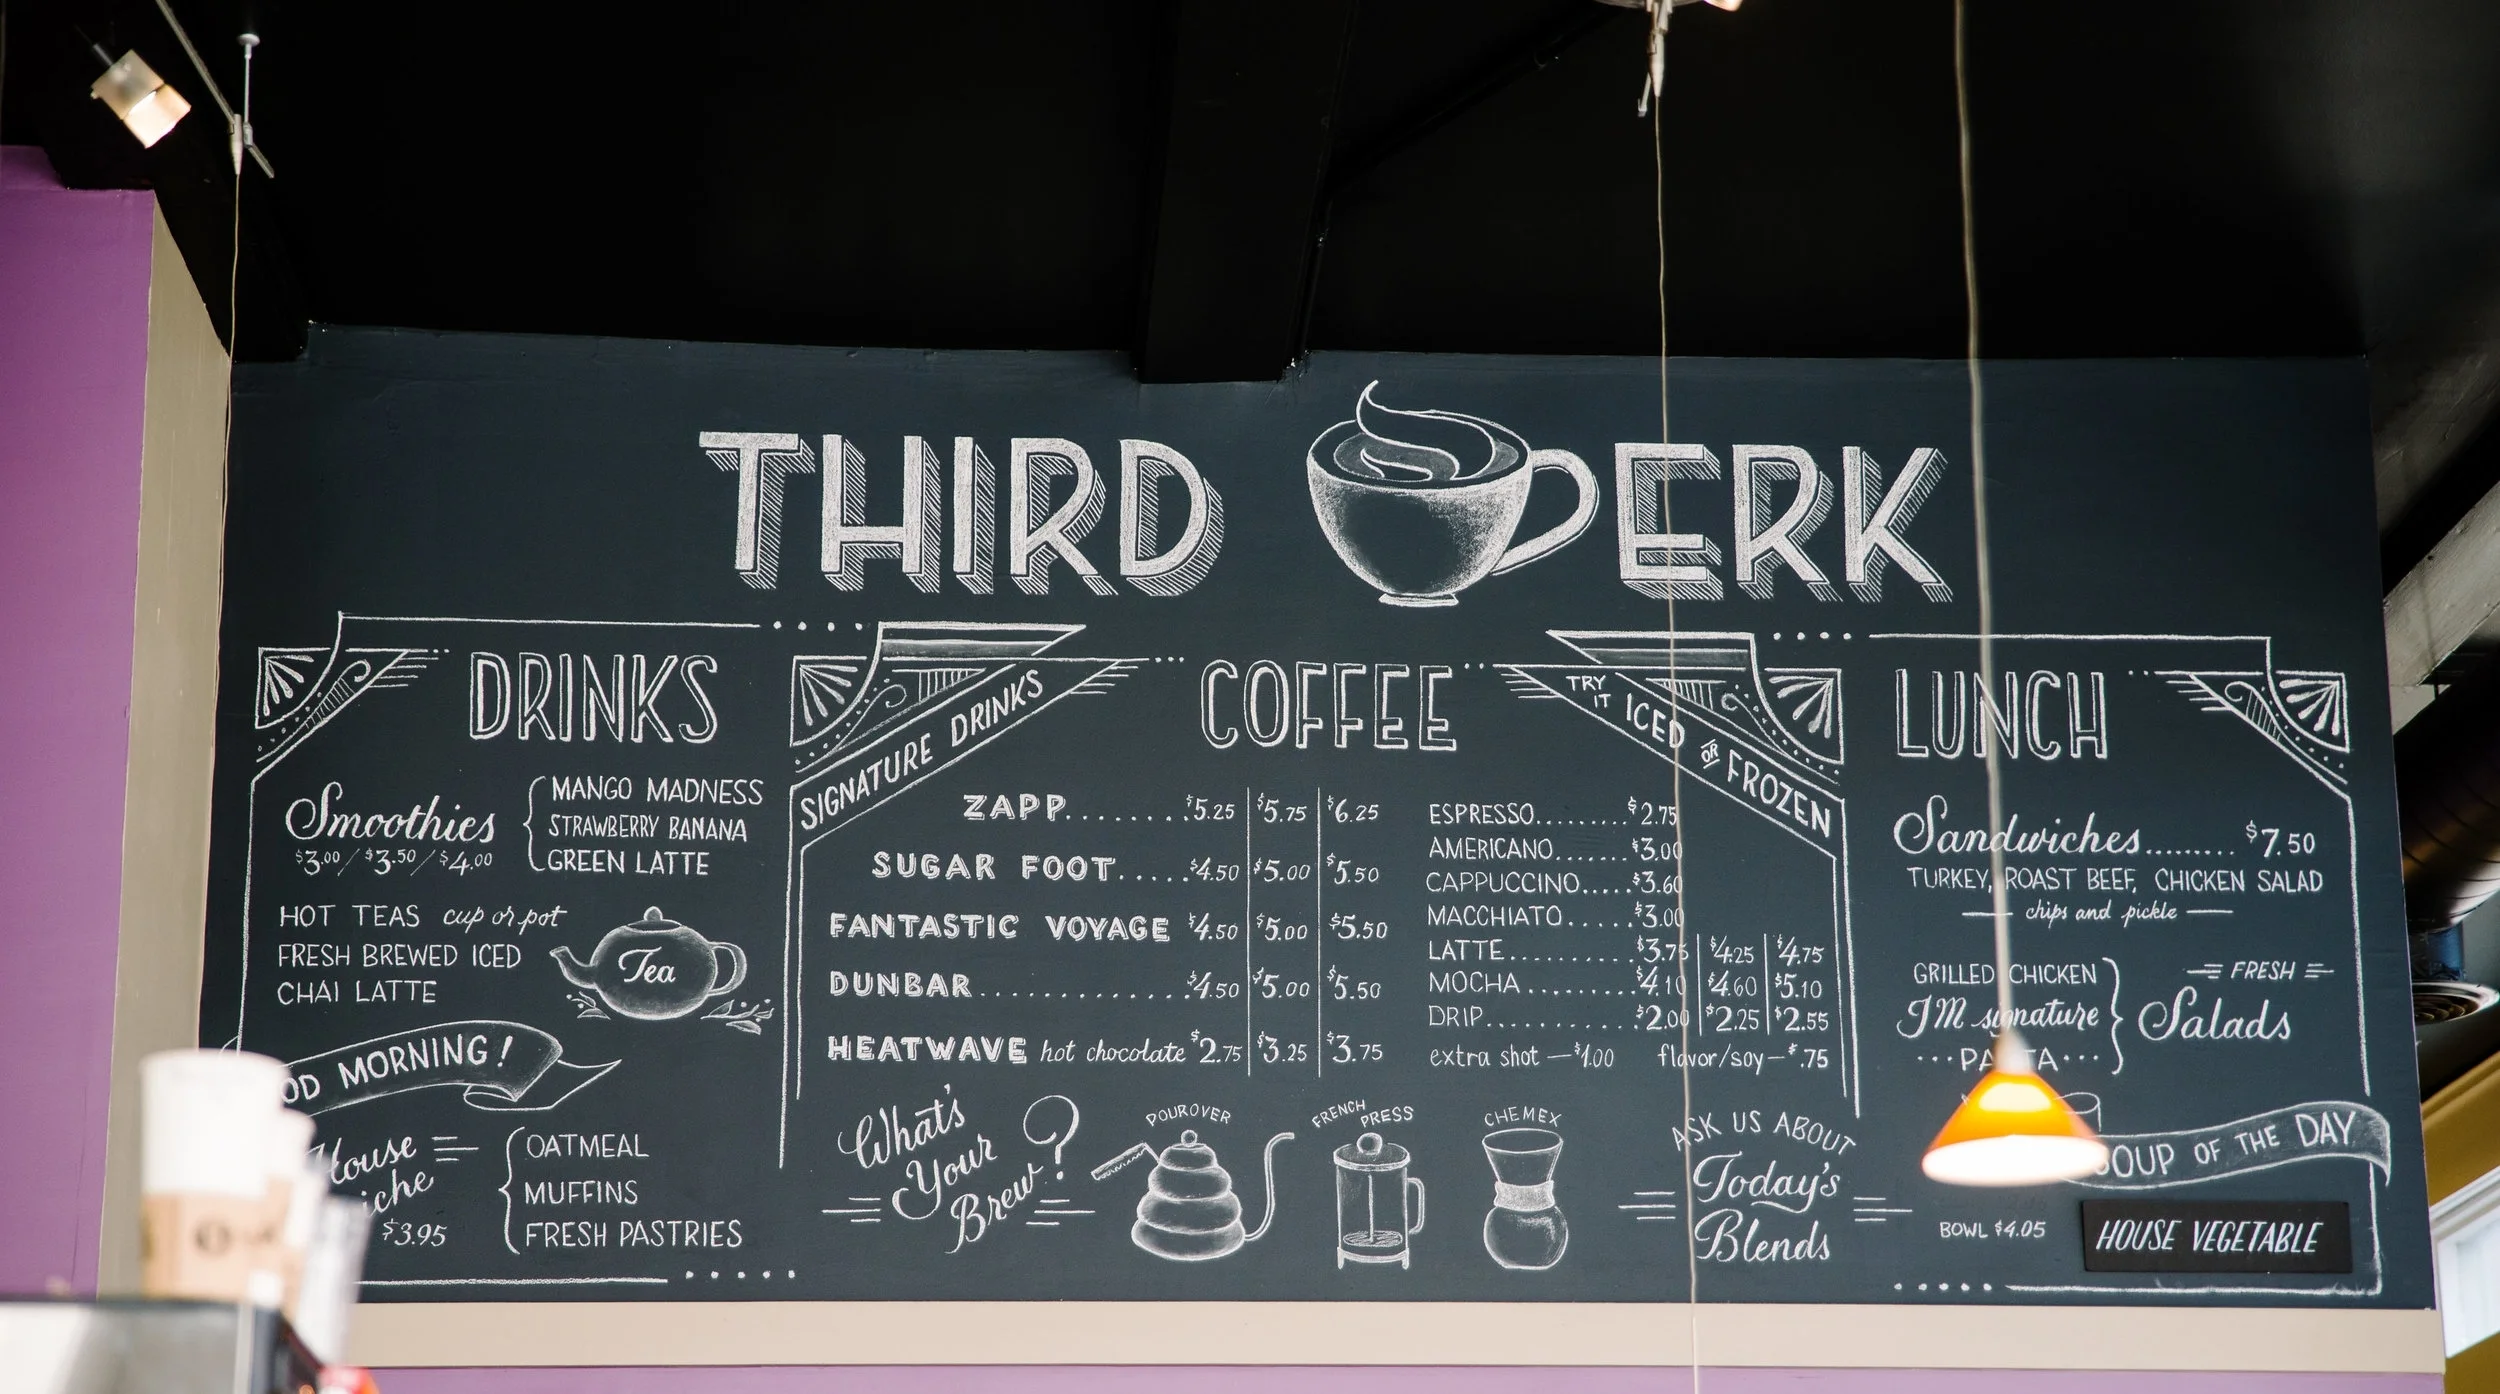 THIRD ERK
DRINKS
Smoothies
$3.00 / $3.50 / $4.00
MANGO MADNESS
STRAWBERRY BANANA
GREEN LATTE
HOT TEAS cup or pot
FRESH BREWED ICED
CHAI LATTE
Tea
OD MORNING!
House
iche
$3.95
OATMEAL
MUFFINS
FRESH PASTRIES
COFFEE
SIGNATURE DRINKS
TRY IT ICED OR FROZEN
ZAPP........$5.25 $5.75 $6.25
SUGAR FOOT.....$4.50 $5.00 $5.50
FANTASTIC VOYAGE $4.50 $5.00 $5.50
DUNBAR............$4.50 $5.00 $5.50
HEATWAVE hot chocolate $2.75 $3.25 $3.75
ESPRESSO.........$2.75
AMERICANO.......$3.00
CAPPUCCINO.....$3.60
MACCHIATO......$3.00
LATTE............$3.75 $4.25 $4.75
MOCHA..........$4.10 $4.60 $5.10
DRIP.............$2.00 $2.25 $2.55
extra shot — $1.00 flavor/soy — $.75
What's
Your
Brew?
POUROVER
FRENCH PRESS
CHEMEX
ASK US ABOUT
Today's
Blends
LUNCH
Sandwiches......... $7.50
TURKEY, ROAST BEEF, CHICKEN SALAD
chips and pickle
GRILLED CHICKEN
JM signature
PASTA
FRESH
Salads
SOUP OF THE DAY
BOWL $4.05
HOUSE VEGETABLE